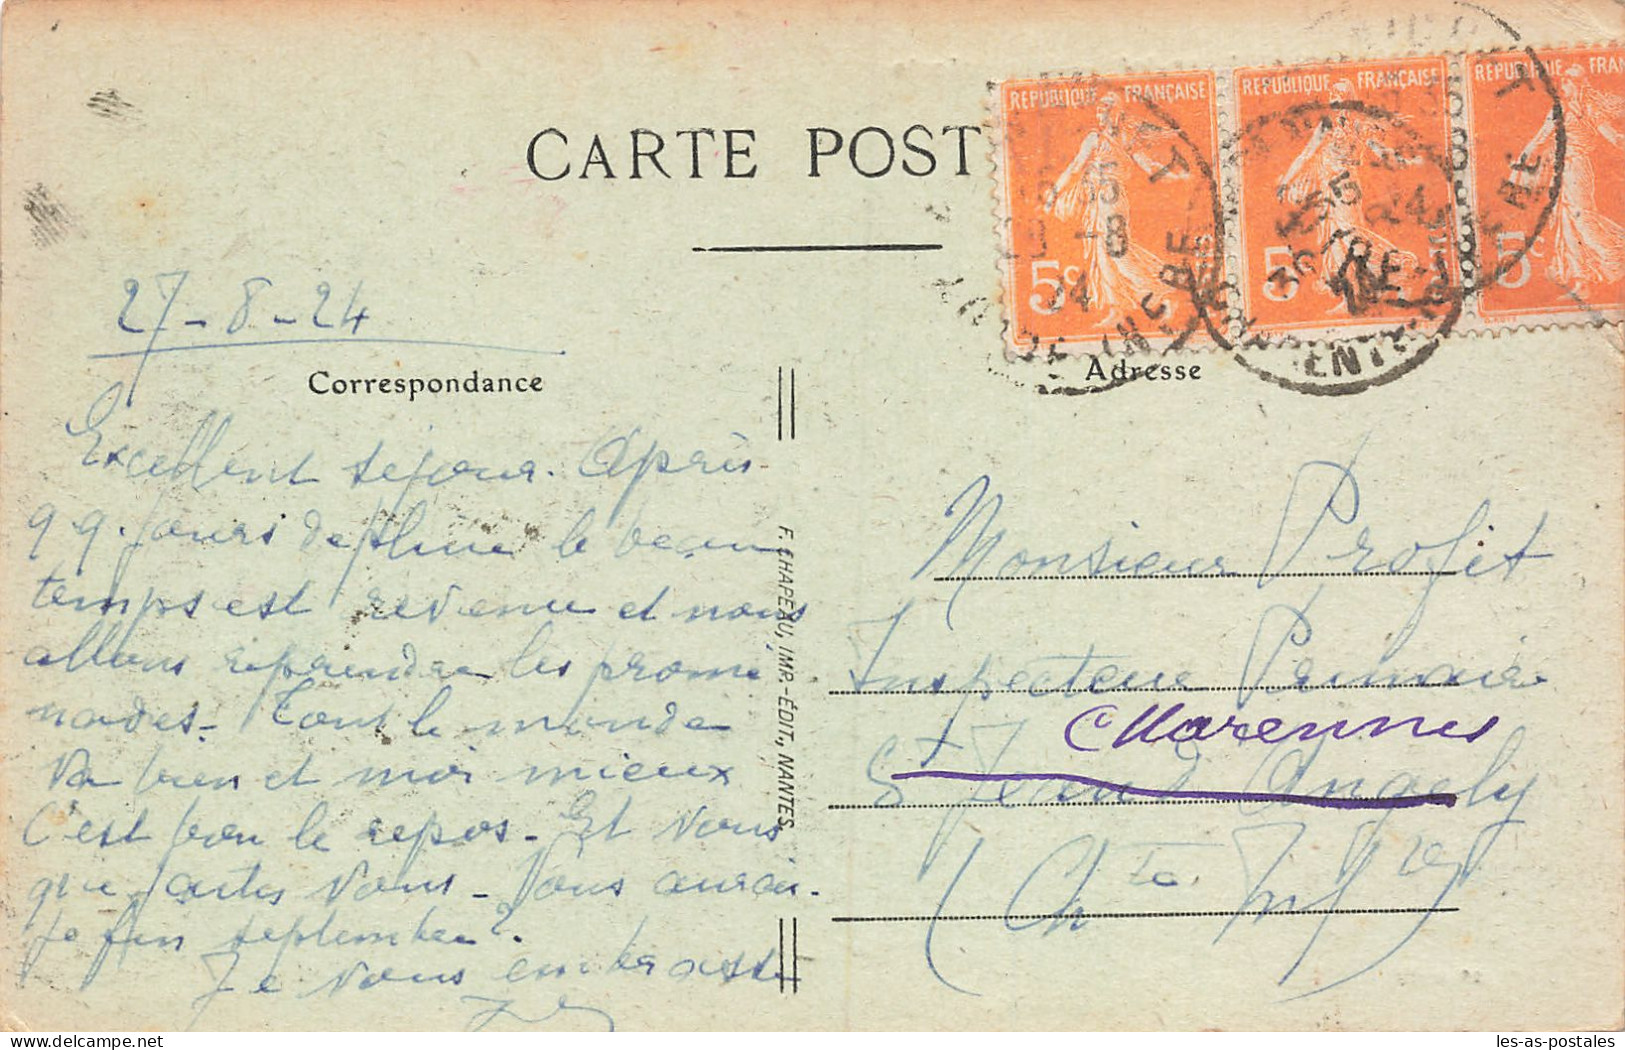 CARTE POST
REPUBLIQUE FRANÇAISE
5c
REPUBLIQUE FRANÇAISE
5c
REPUBLIQUE FRAN
5c
27-8-24
Correspondance
Excellent séjour. Après
qq. jours de pluie le beau
temps est revenu et nous
allons reprendre les prome
nades. Tout le monde
va bien et moi mieux
C'est bon le repos. Et vous
que faites vous. Vous aurai-
je fin septembre?
Je vous embrasse
F. CHAPEAU, IMP.-ÉDIT., NANTES
Adresse
Monsieur Profit
Inspecteur Primaire
Marennes
St Jean d'Angely
(Chte Infre)
les-as-postales